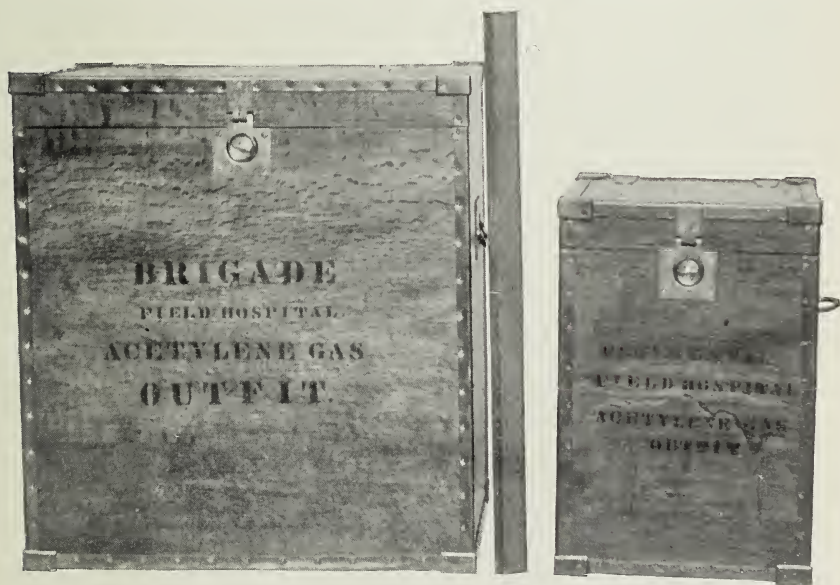 BRIGADE
FIELD HOSPITAL
ACETYLENE GAS
OUTFIT.
REGIMENTAL
FIELD HOSPITAL
ACETYLENE GAS
OUTFIT